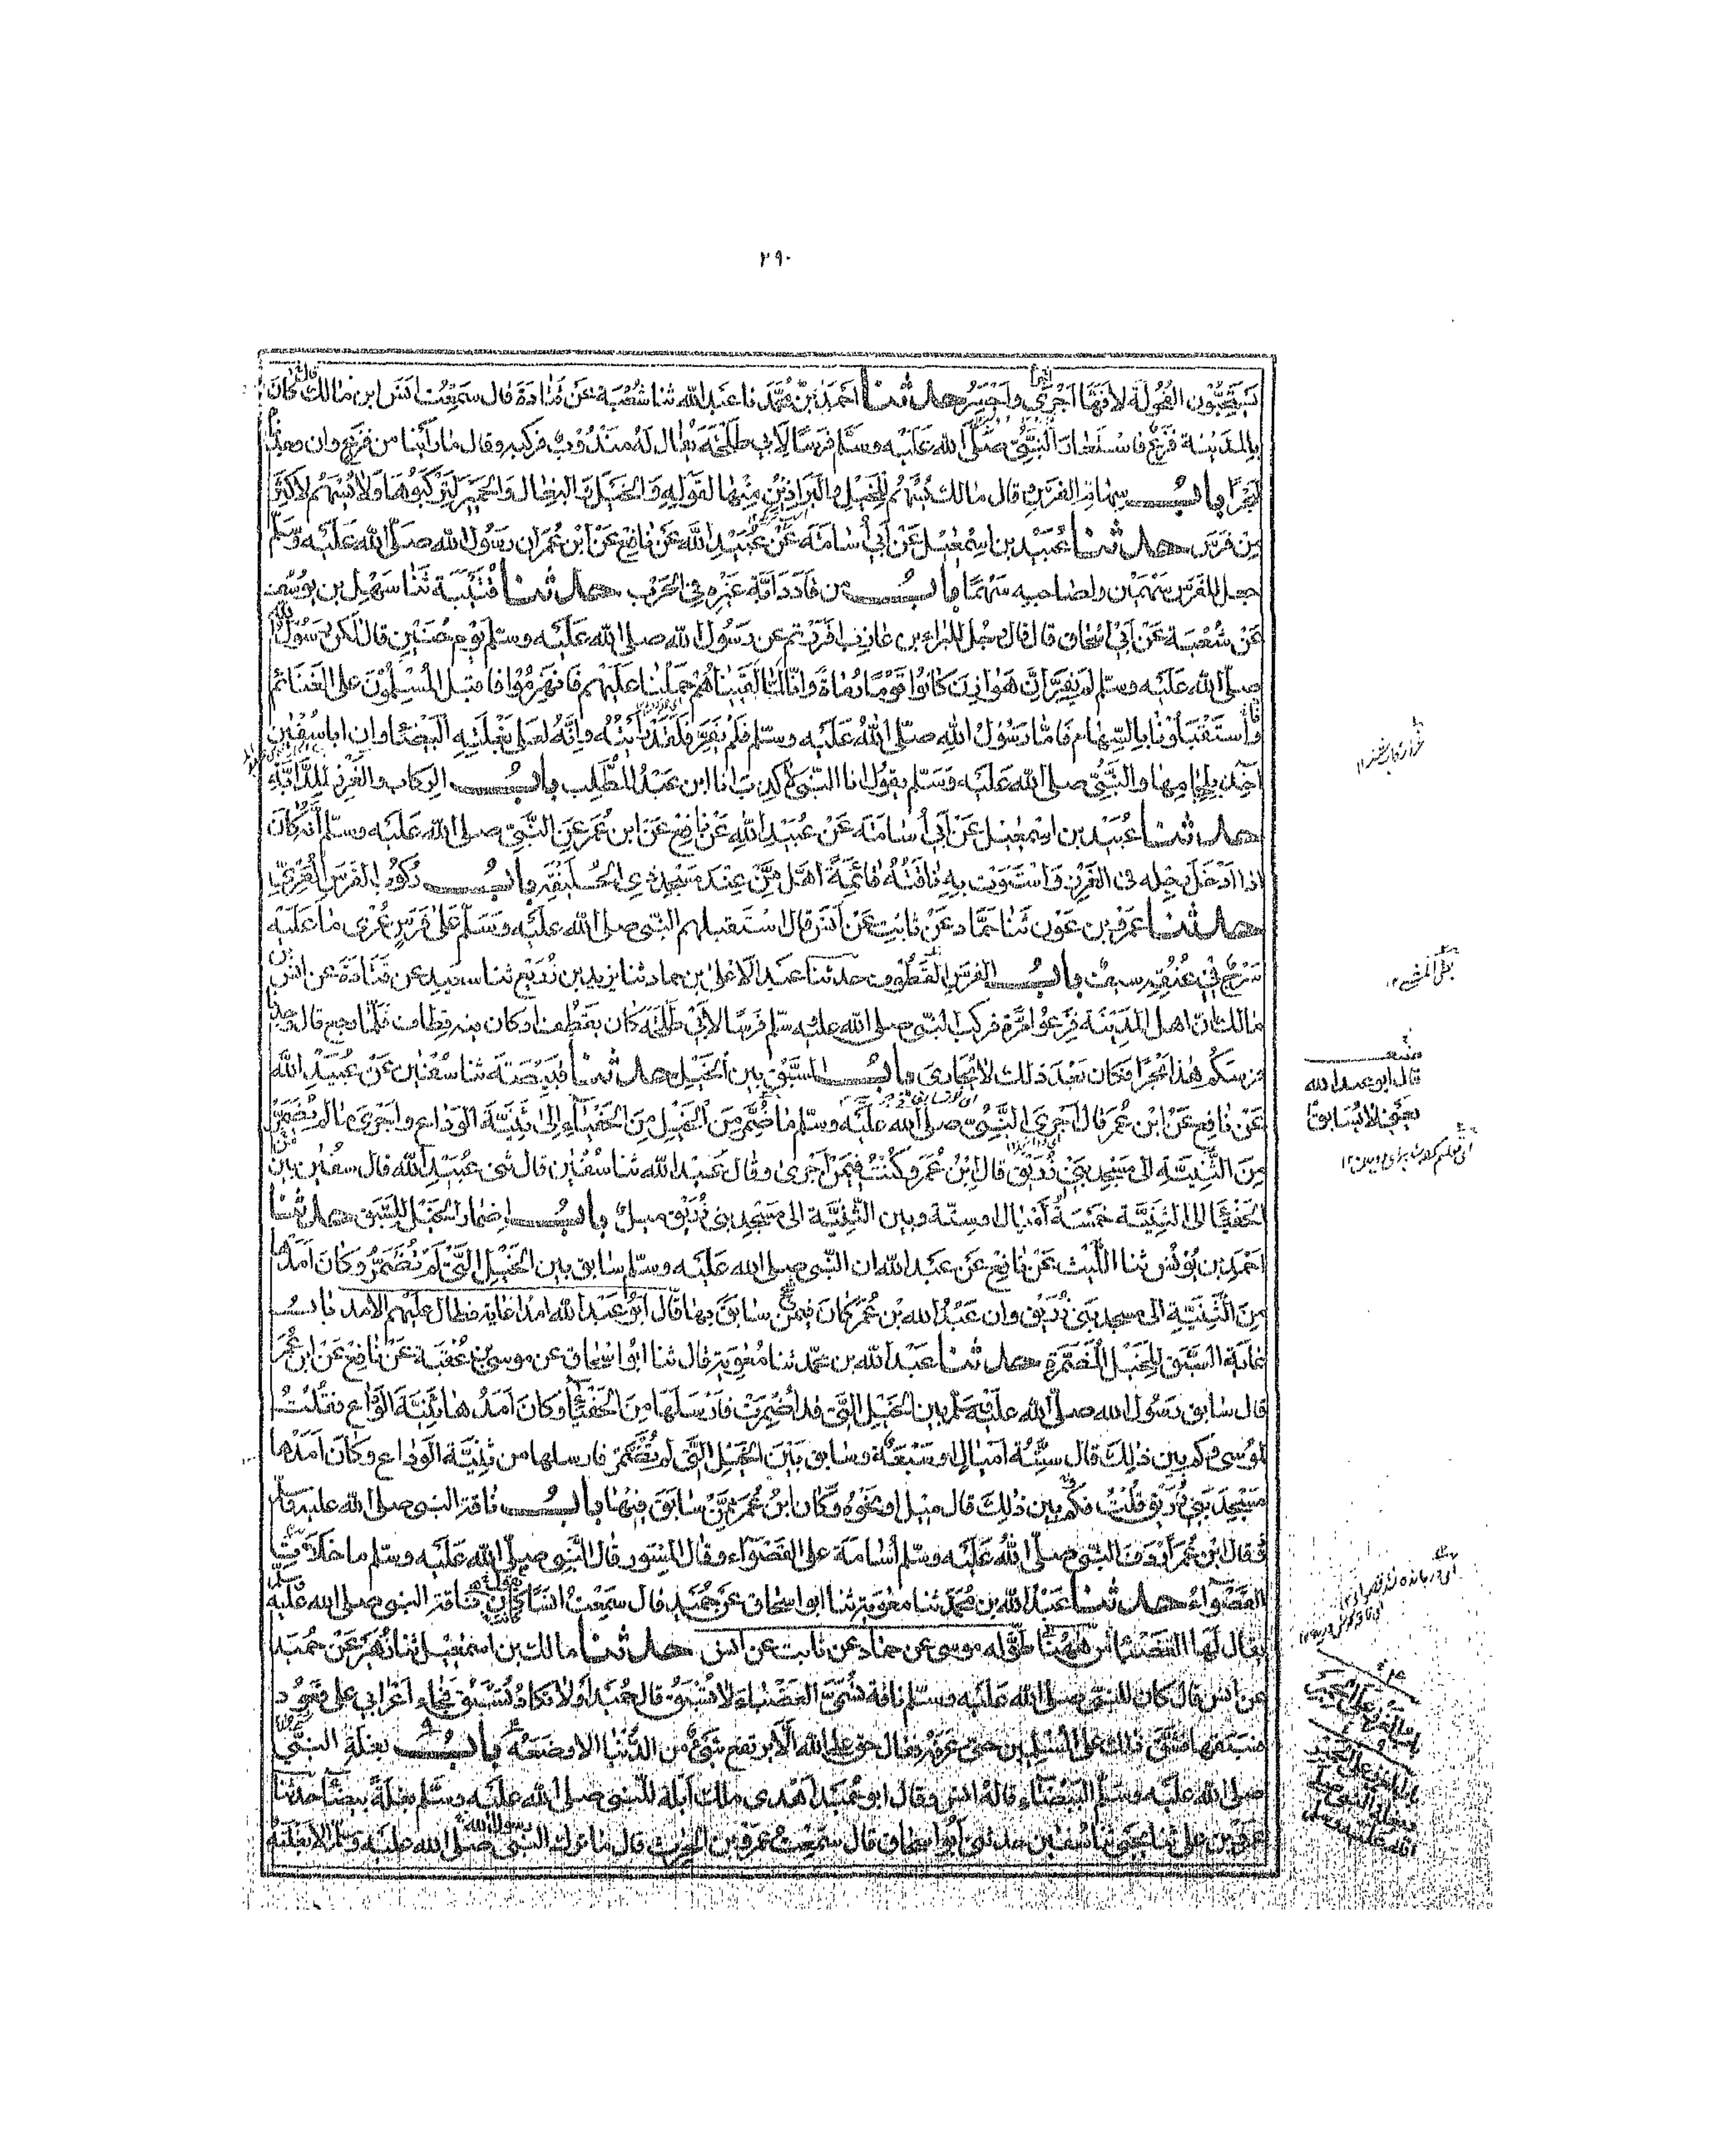 ٢٩٠
يستحبون الفحولة لأنها أجرى وأجسر حدثنا أحمد بن محمد نا عبد الله ثنا شعبة عن قتادة قال سمعت أنس ابن مالك قال كان
بالمدينة فزع فاستعار النبي صلى الله عليه وسلم فرسا لأبي طلحة يقال له مندوب فركبه وقال ما رأينا من فزع وان وجدنا
لبحرا باب سهام الفرس وقال مالك يسهم للخيل والبراذين منها لقوله والخيل والبغال والحمير لتركبوها ولا يسهم لأكثر
من فرس حدثنا عبيد بن اسمعيل عن أبي أسامة عن عبيد الله عن نافع عن ابن عمر ان رسول الله صلى الله عليه وسلم
جعل للفرس سهمين ولصاحبه سهما باب من قاد دابة غيره في الحرب حدثنا قتيبة ثنا سهل بن يوسف
عن شعبة عن أبي اسحاق قال قال رجل للبراء بن عازب افررتم عن رسول الله صلى الله عليه وسلم يوم حنين قال لكن رسول الله
صلى الله عليه وسلم لم يفر ان هوازن كانوا قوما رماة وانا لما لقيناهم حملنا عليهم فانهزموا فاقبل المسلمون على الغنائم
فاستقبلونا بالسهام فاما رسول الله صلى الله عليه وسلم فلم يفر فلقد رأيته وانه لعلى بغلته البيضاء وان ابا سفين
آخذ بلجامها والنبي صلى الله عليه وسلم يقول انا النبي لا كذب انا ابن عبد المطلب باب الركاب والغرز للدابة
حدثنا عبيد بن اسمعيل عن أبي أسامة عن عبيد الله عن نافع عن ابن عمر عن النبي صلى الله عليه وسلم أنه كان
اذا ادخل رجله في الغرز واستوت به ناقته قائمة اهل من عند مسجد ذي الحليفة باب ركوب الفرس العري
حدثنا عمرو بن عون ثنا حماد عن ثابت عن أنس قال استقبلهم النبي صلى الله عليه وسلم على فرس عري ما عليه
سرج في عنقه سيف باب الفرس القطوف حدثنا عبد الاعلى بن حماد ثنا يزيد بن زريع ثنا سعيد عن قتادة عن انس بن
مالك ان اهل المدينة فزعوا مرة فركب النبي صلى الله عليه وسلم فرسا لأبي طلحة كان يقطف او كان فيه قطاف فلما رجع قال وجدنا
فرسكم هذا بحرا فكان بعد ذلك لا يجارى باب السبق بين الخيل حدثنا قبيصة ثنا سفين عن عبيد الله
عن نافع عن ابن عمر قال أجرى النبي صلى الله عليه وسلم ما ضمر من الخيل من الحفياء إلى ثنية الوداع واجرى ما لم يضمر
من الثنية الى مسجد بني زريق قال ابن عمر وكنت فيمن أجرى وقال عبد الله ثنا سفين قال ثني عبيد الله قال سفين بين
الحفياء الى الثنية خمسة أميال او ستة وبين الثنية الى مسجد بني زريق ميل باب اضمار الخيل للسبق حدثنا
احمد بن يونس ثنا الليث عن نافع عن عبد الله ان النبي صلى الله عليه وسلم سابق بين الخيل التي لم تضمر وكان أمدها
من الثنية الى مسجد بني زريق وان عبد الله بن عمر كان فيمن سابق بها قال ابو عبد الله امدا غاية فطال عليهم الامد باب
غاية السبق للخيل المضمرة حدثنا عبد الله بن محمد ثنا معوية قال ثنا ابو اسحاق عن موسى بن عقبة عن نافع عن ابن عمر
قال سابق رسول الله صلى الله عليه وسلم بين الخيل التي قد أضمرت فأرسلها من الحفياء وكان أمدها ثنية الوداع فقلت
لموسى وكم بين ذلك قال ستة أميال او سبعة وسابق بين الخيل التي لم تضمر فارسلها من ثنية الوداع وكان أمدها
مسجد بني زريق قلت فكم بين ذلك قال ميل او نحوه وكان ابن عمر ممن سابق فيها باب ناقة النبي صلى الله عليه وسلم
فقال ابن عمر أردف النبي صلى الله عليه وسلم أسامة على القصواء وقال المسور قال النبي صلى الله عليه وسلم ما خلأت
القصواء حدثنا عبد الله بن محمد ثنا معوية ثنا ابو اسحاق عن حميد قال سمعت انسا كان ناقة النبي صلى الله عليه
يقال لها العضباء من ههنا طوله موسى عن حماد عن ثابت عن انس حدثنا مالك بن اسمعيل ثنا زهير عن حميد
عن انس قال كان للنبي صلى الله عليه وسلم ناقة تسمى العضباء لا تسبق قال حميد أو لا تكاد تسبق فجاء أعرابي على قعود
فسبقها فشق ذلك على المسلمين حتى عرفه فقال حق على الله ألا يرتفع شيء من الدنيا الا وضعه باب بغلة النبي
صلى الله عليه وسلم البيضاء قاله انس وقال ابو حميد أهدى ملك أيلة للنبي صلى الله عليه وسلم بغلة بيضاء حدثنا
عمرو بن علي ثنا يحيى ثنا سفين حدثني أبو اسحاق قال سمعت عمرو بن الحرث قال ما ترك النبي صلى الله عليه وسلم الا بغلته
قال ابو عبد الله
يعني لا يسابق